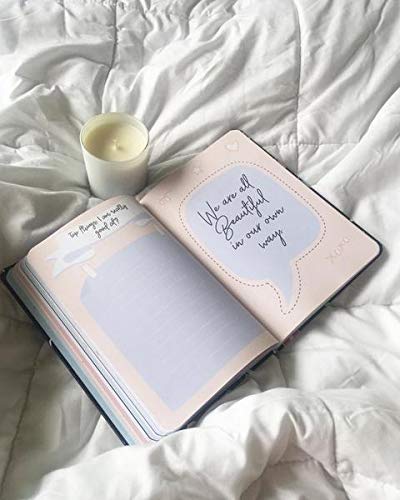 Top things I am really
good at?
We are all
Beautiful
in our own
way.
xoxo